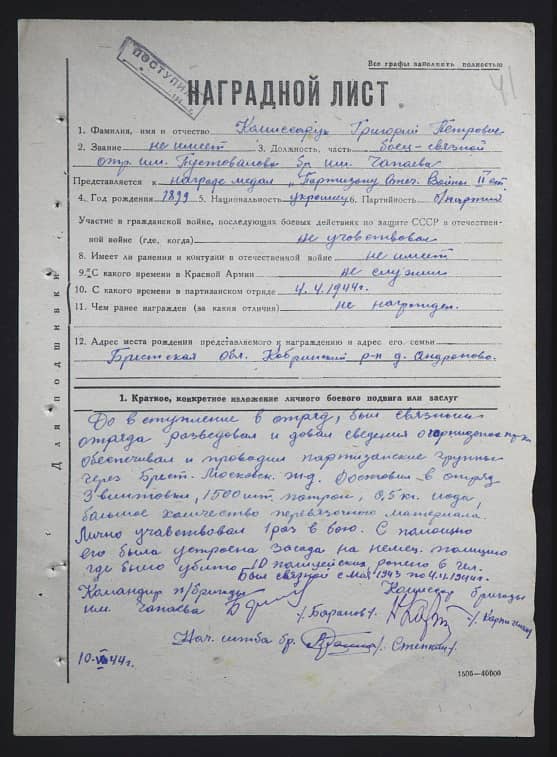 Все графы заполнять полностью
41
ПОСТУПИЛ
НАГРАДНОЙ ЛИСТ
1. Фамилия, имя и отчество Комиссарук Григорий Петрович
2. Звание не имеет 3. Должность, часть боец-связной
отр. им. Пустовалова бр им. Чапаева
Представляется к награде медал „Партизану Отеч. Войны II ст.
4. Год рождения 1899 5. Национальность украинец 6. Партийность б/партий
Участие в гражданской войне, последующих боевых действиях по защите СССР и отечествен-
ной войне (где, когда) не учавствовал
8. Имеет ли ранения и контузии в отечественной войне не имеет
9. С какого времени в Красной Армии не служил
10. С какого времени в партизанском отряде 4.4.1944г.
11. Чем ранее награжден (за какия отличия) не награжден.
12. Адрес места рождения представляемого к награждению и адрес его семьи
Брестская Обл. Кобринский р-н д. Андроново.
Для подшивки
1. Краткое, конкретное изложение личного боевого подвига или заслуг
До вступление в отряд, был связным
отряда разведовал и довал сведения о
обеспечивал и проводил партизанские группы
через Брест. Московск. ж.д. Доставил в отряд
3 винтовки, 1500 шт. патрон, 0,5 кг. иода,
большое количество перевязочного материала.
Лично учавствовал 1 раз в бою. С помощью
его была устроена засада на немец. полицию
где было убито 10 полицейских ранено 6 чел.
Был связной с мая 1943 по 4.4.1944г.
Командир п/бригады Комиссар бригады
им. Чапаева /Баранов/.
Нач. штаба бр. /Степкин/
10-VI-44г.
1505—40000